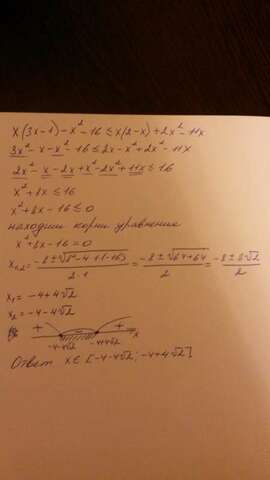 x(3x-1)-x²-16≤x(2-x)+2x²-11x
3x²-x-x²-16≤2x-x²+2x²-11x
2x²-x-2x+x²-2x²+11x≤16
x²+8x≤16
x²+8x-16≤0
находим корни уравнения
x²+8x-16=0
x₁,₂=(-8±√(8²-4·1·(-16)))/(2·1)=(-8±√(64+64))/2=(-8±8√2)/2
x₁=-4+4√2
x₂=-4-4√2
+ - + x
-4-4√2 -4+4√2
Ответ x∈[-4-4√2; -4+4√2]